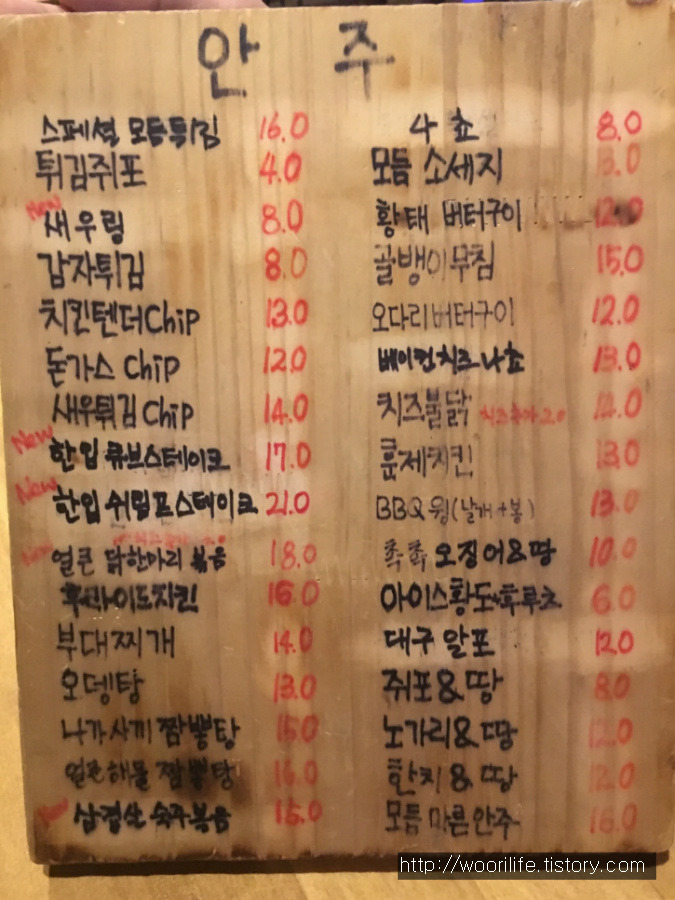 안 주
스페셜 모듬튀김 16.0
튀김쥐포 4.0
New 새우링 8.0
감자튀김 8.0
치킨텐더Chip 13.0
돈가스 Chip 12.0
새우튀김 Chip 14.0
New 한입 큐브스테이크 17.0
New 한입 쉬림프스테이크 21.0
New 얼큰 닭한마리 볶음 18.0
후라이드치킨 16.0
부대찌개 14.0
오뎅탕 13.0
나가사끼 짬뽕탕 15.0
얼큰해물 짬뽕탕 16.0
New 삼겹살 숙주볶음 15.0
나쵸 8.0
모듬 소세지
황태 버터구이 12.0
골뱅이무침 15.0
오다리버터구이 12.0
베이컨치즈나쵸 13.0
치즈불닭 치즈추가 2.0 14.0
훈제치킨 13.0
BBQ윙(날개+봉) 13.0
촉촉 오징어&땅 10.0
아이스황도&후루츠 6.0
대구 알포 12.0
쥐포&땅 8.0
노가리&땅 12.0
한치&땅 12.0
모듬 마른안주 16.0
http://woorilife.tistory.com